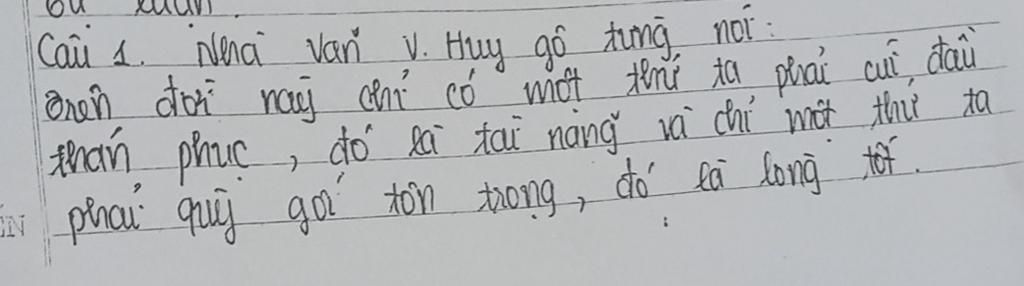 ou xuân.
Câu 1. Nhà văn V. Huy gô từng nói:
Trên đời này chỉ có một thứ ta phải cúi đầu
thán phục, đó là tài năng và chỉ một thứ ta
phải quỳ gối tôn trọng, đó là lòng tốt.
IN